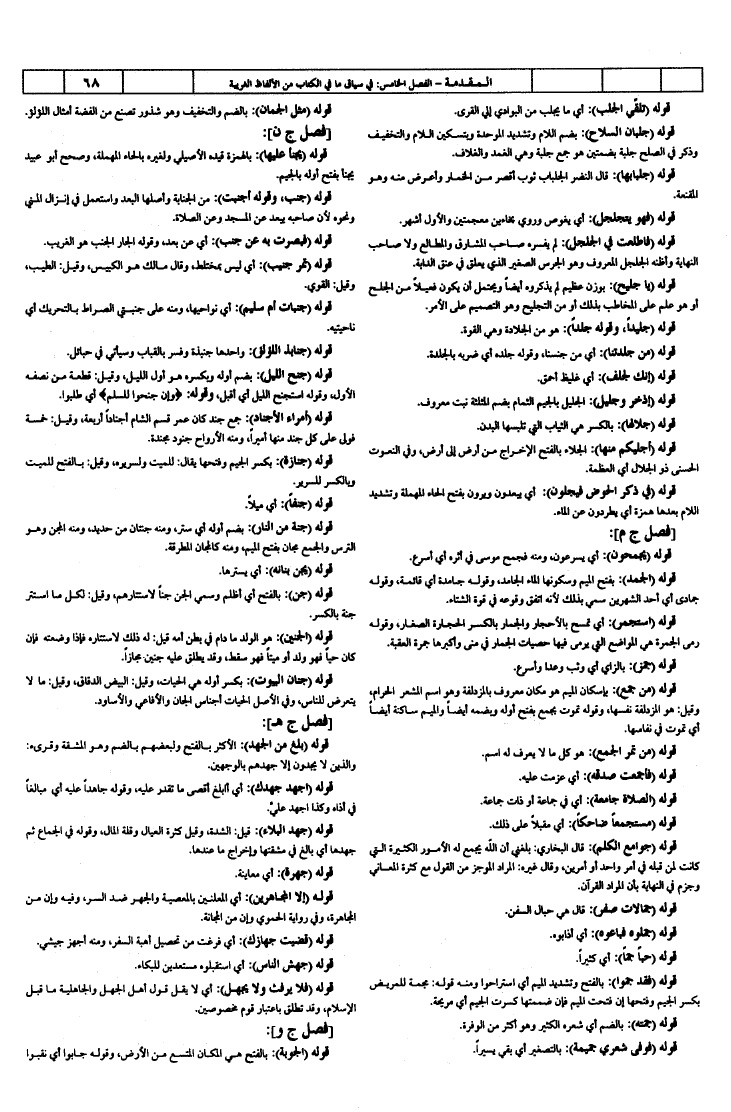 المقدمة – الفصل الخامس: في سياق ما في الكتاب من الألفاظ الغريبة
٦٨
قوله (تلقّي الجلب): أي ما يجلب من البوادي إلى القرى.
قوله (جلبان السلاح): بضم اللام وتشديد الموحدة وبتسكين اللام والتخفيف
وذكر في الصلح جلبة بضمتين هو جمع جلبة وهي الغمد والغلاف.
قوله (جلبابها): قال النضر الجلباب ثوب أقصر من الخمار وأعرض منه وهو
المقنعة.
قوله (فهو يتجلجل): أي يغوص وروي بخاءين معجمتين والأول أشهر.
قوله (فاطلعت في الجلجل): لم يفسره صاحب المشارق والمطالع ولا صاحب
النهاية وأظنه الجلجل المعروف وهو الجرس الصغير الذي يعلق في عنق الدابة.
قوله (يا جليح): بوزن عظيم لم يذكروه أيضاً ويحتمل أن يكون فعيلاً من الجلح
أو هو علم على المخاطب بذلك أو من التجليح وهو التصميم على الأمر.
قوله (جليداً، وقوله جلداً): هو من الجلادة وهي القوة.
قوله (من جلدتنا): أي من جنسنا، وقوله جلده أي ضربه بالجلدة.
قوله (إنك لجلف): أي غليظ أحمق.
قوله (إذخر وجليل): الجليل بالجيم الثمام بضم المثلثة نبت معروف.
قوله (جلالها): بالكسر هي الثياب التي تلبسها البدن.
قوله (أجليكم منها): الجلاء بالفتح الإخراج من أرض إلى أرض، وفي النعوت
الحسنى ذو الجلال أي العظمة.
قوله (في ذكر الحوض فيجلون): أي يبعدون ويرون بفتح الحاء المهملة وتشديد
اللام بعدها همزة أي يطردون عن الماء.
[فصل ج م]:
قوله (يجمحون): أي يسرعون، ومنه فجمح موسى في أثره أي أسرع.
قوله (الجمد): بفتح الميم وسكونها الماء الجامد، وقوله جامدة أي قائمة، وقوله
جمادى أي أحد الشهرين سمي بذلك لأنه اتفق وقوعه في قوة الشتاء.
قوله (استجمر): أي تمسح بالأحجار والجمار بالكسر الحجارة الصغار، وقوله
رمى الجمرة هي المواضع التي يرمى فيها حصيات الجمار في منى وأكبرها جمرة العقبة.
قوله (جمز): بالزاي أي وثب وعدا وأسرع.
قوله (من جمع): بإسكان الميم هو مكان معروف بالمزدلفة وهو اسم المشعر الحرام،
وقيل: هو المزدلفة نفسها، وقوله تموت بجمع بفتح أوله وبضمه أيضاً والميم ساكنة أيضاً
أي تموت في نفاسها.
قوله (من تمر الجمع): هو كل ما لا يعرف له اسم.
قوله (فأجمعت صدقه): أي عزمت عليه.
قوله (الصلاة جامعة): أي في جماعة أو ذات جماعة.
قوله (مستجمعاً ضاحكاً): أي مقبلاً على ذلك.
قوله (جوامع الكلم): قال البخاري: بلغني أن اللّه يجمع له الأمور الكثيرة التي
كانت لمن قبله في أمر واحد أو أمرين، وقال غيره: المراد الموجز من القول مع كثرة المعاني
وجزم في النهاية بأن المراد القرآن.
قوله (جمالات صفر): قال هي حبال السفن.
قوله (جملوه فباعوه): أي أذابوه.
قوله (حباً جماً): أي كثيراً.
قوله (فقد جموا): بالفتح وتشديد الميم أي استراحوا ومنه قوله: مجمة للمريض
بكسر الجيم وفتحها إن فتحت الميم فإن ضممتها كسرت الجيم أي مريحة.
قوله (جمته): بالضم أي شعره الكثير وهو أكثر من الوفرة.
قوله (فوفى شعري جميمة): بالتصغير أي بقي يسيراً.
قوله (مثل الجمان): بالضم والتخفيف وهو شذور تصنع من الفضة أمثال اللؤلؤ.
[فصل ج ن]:
قوله (يجنأ عليها): بالهمزة قيده الأصيلي ولغيره بالحاء المهملة، وصحح أبو عبيد
يجنأ بفتح أوله بالجيم.
قوله (جنب، وقوله أجنبت): من الجنابة وأصلها البعد واستعمل في إنزال المني
ونحوه لأن صاحبه يبعد عن المسجد وعن الصلاة.
قوله (فبصرت به عن جنب): أي عن بعد، وقوله الجار الجنب هو الغريب.
قوله (تمر جنيب): أي ليس بمختلط، وقال مالك هو الكبيس، وقيل: الطيب،
وقيل: القوي.
قوله (جنبات أم سليم): أي نواحيها، ومنه على جنبتي الصراط بالتحريك أي
ناحيتيه.
قوله (جنابذ اللؤلؤ): واحدها جنبذة وفسر بالقباب وسيأتي في حبائل.
قوله (جنح الليل): بضم أوله وبكسره هو أول الليل، وقيل: قطعة من نصفه
الأول، وقوله استجنح الليل أي أقبل، وقوله: ﴿وإن جنحوا للسلم﴾ أي طلبوا.
قوله (أمراء الأجناد): جمع جند كان عمر قسم الشام أجناداً أربعة، وقيل: خمسة
فولى على كل جند منها أميراً، ومنه الأرواح جنود مجندة.
قوله (جنازة): بكسر الجيم وفتحها يقال: للميت ولسريره، وقيل: بالفتح للميت
وبالكسر للسرير.
قوله (جنفاً): أي ميلاً.
قوله (جنة من النار): بضم أوله أي ستر، ومنه جنتان من حديد، ومنه المجن وهو
الترس والجمع مجان بفتح الميم، ومنه كالمجان المطرقة.
قوله (يجن بنانه): أي يسترها.
قوله (جن): بالفتح أي أظلم وسمي الجن جناً لاستتارهم، وقيل: لكل ما استتر
جنة بالكسر.
قوله (الجنين): هو الولد ما دام في بطن أمه قيل: له ذلك لاستتاره فإذا وضعته فإن
كان حياً فهو ولد أو ميتاً فهو سقط، وقد يطلق عليه جنين مجازاً.
قوله (جنان البيوت): بكسر أوله هي الحيات، وقيل: البيض الدقاق، وقيل: ما لا
يتعرض للناس، وفي الأصل الحيات أجناس الجان والأفاعي والأساود.
[فصل ج هـ]:
قوله (بلغ من الجهد): الأكثر بالفتح ولبعضهم بالضم وهو المشقة وقرىء:
والذين لا يجدون إلا جهدهم بالوجهين.
قوله (اجهد جهدك): أي أبلغ أقصى ما تقدر عليه، وقوله جاهداً عليه أي مبالغاً
في أذاه وكذا اجهد عليّ.
قوله (جهد البلاء): قيل: الشدة، وقيل كثرة العيال وقلة المال، وقوله في الجماع ثم
جهدها أي بالغ في مشقتها وإخراج ما عندها.
قوله (جهرة): أي معاينة.
قوله (إلا المجاهرين): أي المعلنين بالمعصية والجهر ضد السر، وفيه وإن من
المجاهرة، وفي رواية الحموي وإن من المجانة.
قوله (قضيت جهازك): أي فرغت من تحصيل أهبة السفر، ومنه أجهز جيشي.
قوله (جهش الناس): أي استقبلوه مستعدين للبكاء.
قوله (فلا يرفث ولا يجهل): أي لا يقل قول أهل الجهل والجاهلية ما قبل
الإسلام، وقد تطلق باعتبار قوم مخصوصين.
[فصل ج و]:
قوله (الجوبة): بالفتح هي المكان المتسع من الأرض، وقوله جابوا أي نقبوا